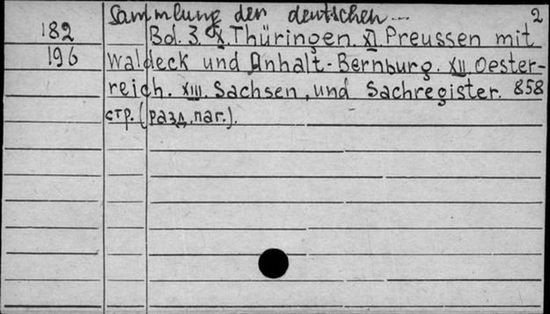 Sammlung der deutschen... 2
182 Bd. 3. X Thüringen. XI Preussen mit
196 Waldeck und Anhalt-Bernburg. XII Oester-
reich. XIII. Sachsen, und Sachregister. 858
стр. (разд. паг.).